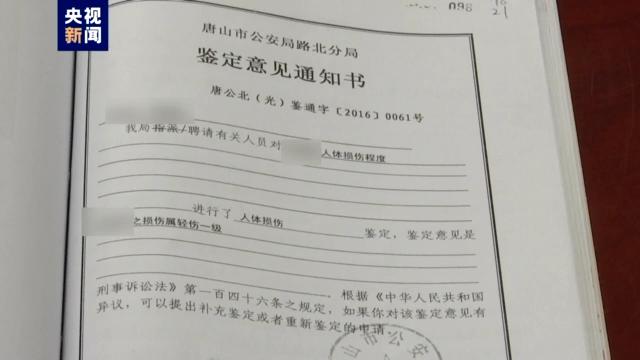 央视
新闻
098
21
唐山市公安局路北分局
鉴定意见通知书
唐公北（光）鉴通字〔2016〕0061号
我局指派/聘请有关人员对
人体损伤程度
进行了 人体损伤 鉴定，鉴定意见是
之损伤属轻伤一级
。根据《中华人民共和国
刑事诉讼法》第一百四十六条之规定，如果你对该鉴定意见有
异议，可以提出补充鉴定或者重新鉴定的申请。